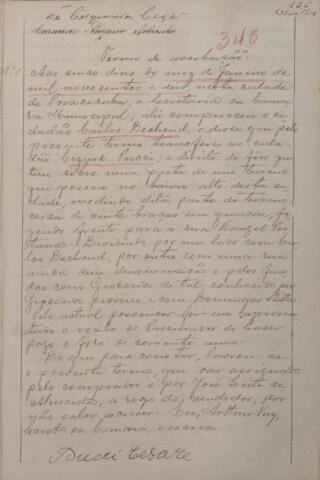 de Cerqueira Cesar
346
Termo de
Nº 1 Aos onze dias do mez de Janeiro de
mil novecentos e um, nesta cidade
de Piracicaba, a secretaria da Cama-
ra Municipal, ahi compareceu o ci-
dadão Carlos Dechend, e disse que pelo
presente termo transfere ao cida-
dão Cezare Pucci, o direito de fôro que
tem sobre uma parte de um terreno
que possue no bairro alto desta ci-
dade, medindo dita parte de terreno
cerca de vinte braças em quadra, fa-
zendo frente para a rua Rangel Pes-
tana: Dividindo por um lado com Car-
los Dechend, por outro com uma rua
ainda sem denominação e pelos fun-
dos com Gioscondo de Tal, conhecido por
Gioscondo e com Domingos
Pelo actual possuidor foi-me apresen-
tado o recibo do Procurador de haver
pago o fôro do corrente anno.
Do que para constar, lavrou-se
o presente termo, que vai assignado
pelo comprador e por José Leite de
a rogo do vendedor, por
não saber escrever. Eu, Arthur Vaz,
da Camara, o escrevi.
Pucci Cesare